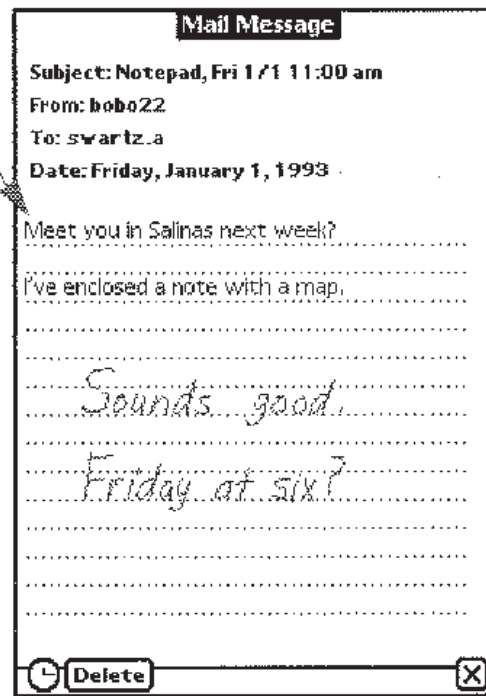 Mail Message
Subject: Notepad, Fri 1/1 11:00 am
From: bobo22
To: swartz.a
Date: Friday, January 1, 1993
Meet you in Salinas next week?
I've enclosed a note with a map.
Sounds good.
Friday at six?
Delete